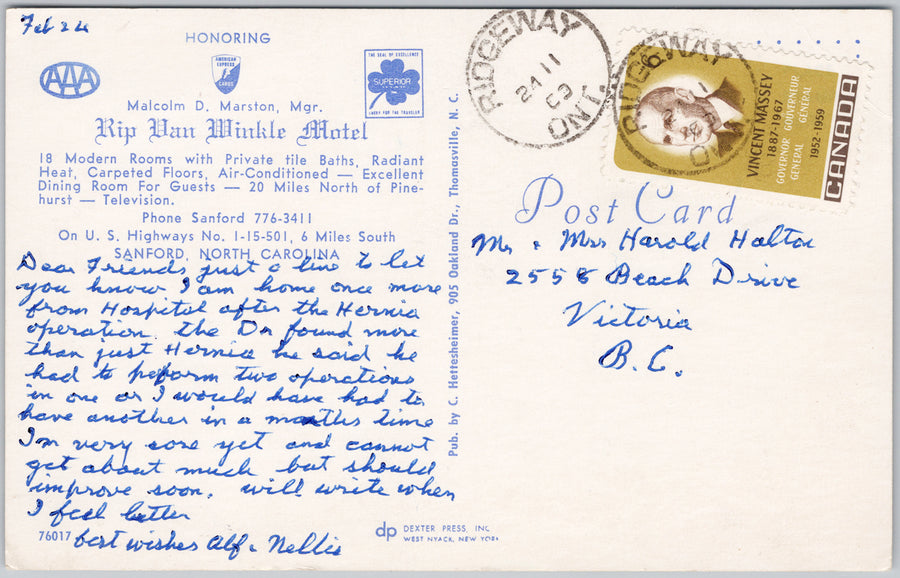 Feb 24
HONORING
AAA
AMERICAN EXPRESS
CARDS
THE SEAL OF EXCELLENCE
SUPERIOR
CARRY FOR THE TRAVELER
Malcolm D. Marston, Mgr.
Rip Van Winkle Motel
18 Modern Rooms with Private tile Baths, Radiant
Heat, Carpeted Floors, Air-Conditioned — Excellent
Dining Room For Guests — 20 Miles North of Pine-
hurst — Television.
Phone Sanford 776-3411
On U. S. Highways No. 1-15-501, 6 Miles South
SANFORD, NORTH CAROLINA
Dear Friends just a line to let
you know I am home once more
from Hospital after the Hernia
operation. the Dr found more
than just Hernia he said he
had to peform two operations
in one or I would have had to
have another in a months time
I'm very sore yet and cannot
get about much but should
improve soon. will write when
I feel better
best wishes Alf & Nellie
76017
dp DEXTER PRESS, INC.
WEST NYACK, NEW YORK
Pub. by C. Hettesheimer, 905 Oakland Dr., Thomasville, N. C.
RIDGEWAY
24 II
69
ONT.
RIDGEWAY
VINCENT MASSEY
1887-1967
GOVERNOR GENERAL
GOUVERNEUR GENERAL
1952-1959
CANADA
Post Card
Mr & Mrs Harold Halton
2558 Beach Drive
Victoria
B.C.